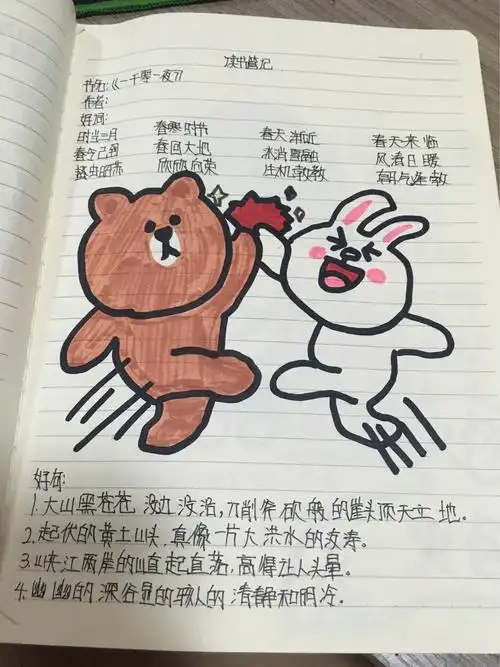 读书笔记
书名:《一千零一夜》
作者:
好词:
时当二月 春寒时节 春天渐近 春天来临
春令已到 春回大地 冰消雪融 风清日暖
蛰虫昭苏 欣欣向荣 生机勃勃 朝气蓬勃
好句:
1.大山黑苍苍 没边没沿,刀削斧砍般的崖头顶天立地。
2.起伏的黄土山头,真像一片大洪水的波涛。
3.峡江两岸的山直起直落,高得让人头晕。
4.幽幽的深谷显的骇人的清静和阴冷.